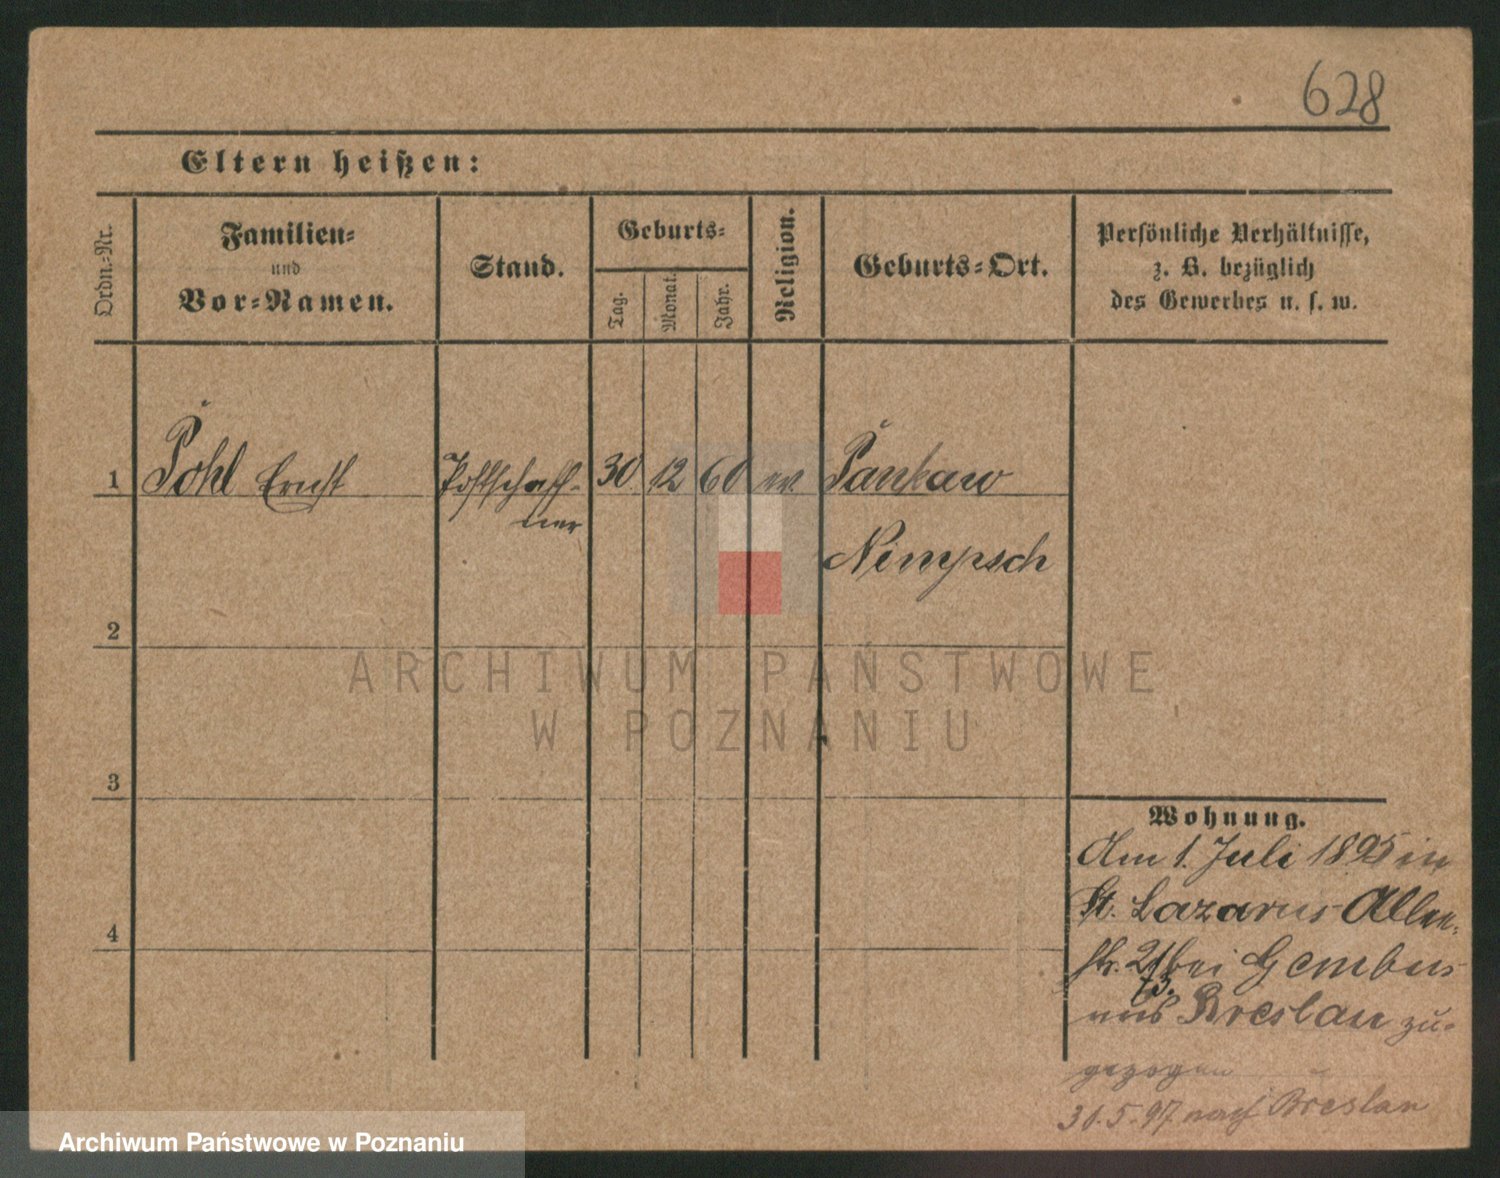 628
Eltern heißen:
Ordn.-Nr.
Familien-
und
Vor-Namen.
Stand.
Geburts-
Tag.
Monat.
Jahr.
Religion.
Geburts-Ort.
Persönliche Verhältnisse,
z. B. bezüglich
des Gewerbes u. s. w.
1 Pohl Ernst Postschaff- 30. 12 60 ev. Pankaw
ner
Nimpsch
2
ARCHIWUM PAŃSTWOWE
W POZNANIU
3
4
Wohnung.
Am 1. Juli 1895 in
St. Lazarus Allee-
str. 21 bei Gembus
73.
aus Breslau zu-
gezogen
31.5.97 nach Breslau
Archiwum Państwowe w Poznaniu